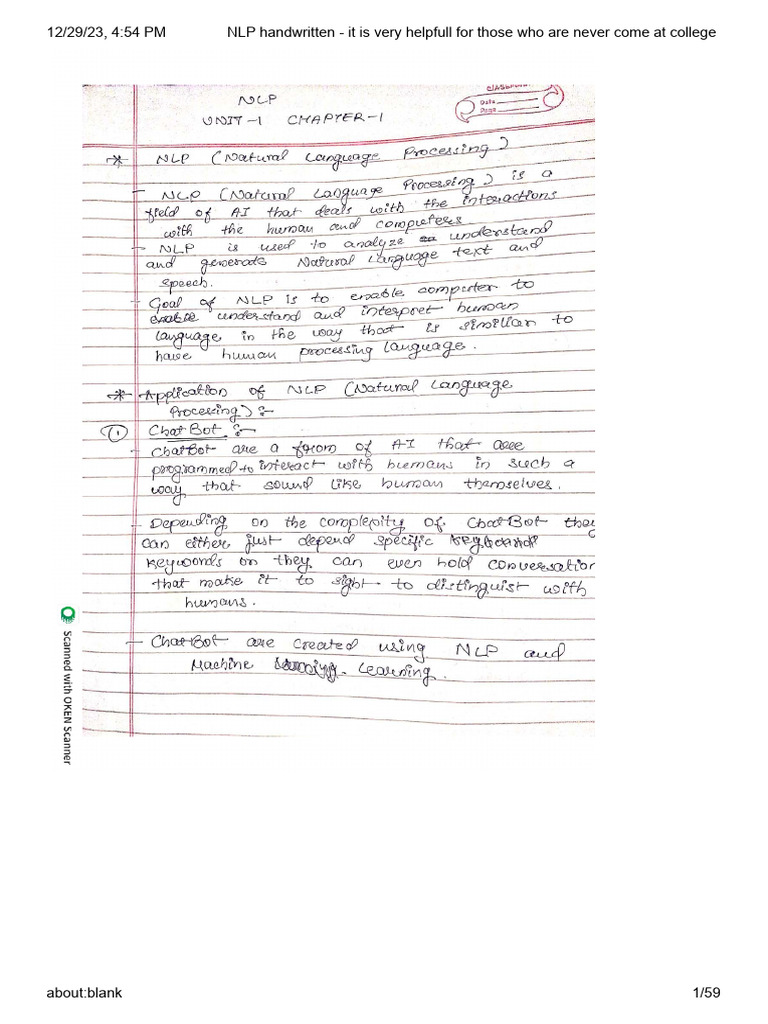 12/29/23, 4:54 PM NLP handwritten - it is very helpfull for those who are never come at college
CLASSMATE
Date
Page
NLP
UNIT-1 CHAPTER-1
* NLP (Natural Language Processing)
- NLP (Natural Language Processing) is a
field of AI that deals with the interactions
with the human and computers
- NLP is used to analyze understand
and generate Natural Language text and
speech.
- Goal of NLP is to enable computer to
enable understand and interpret human
language in the way that is similiar to
have human processing language.
* Application of NLP (Natural Language
Processing) :-
① ChatBot :-
- ChatBot are a form of AI that are
programmed to interact with humans in such a
way that sound like human themselves.
- Depending on the complexity of ChatBot they
can either just depend specific
keywords or they can even hold conversation
that make it to sight to distinguist with
humans.
- ChatBot are created using NLP and
Machine Learning.
Scanned with OKEN Scanner
about:blank 1/59